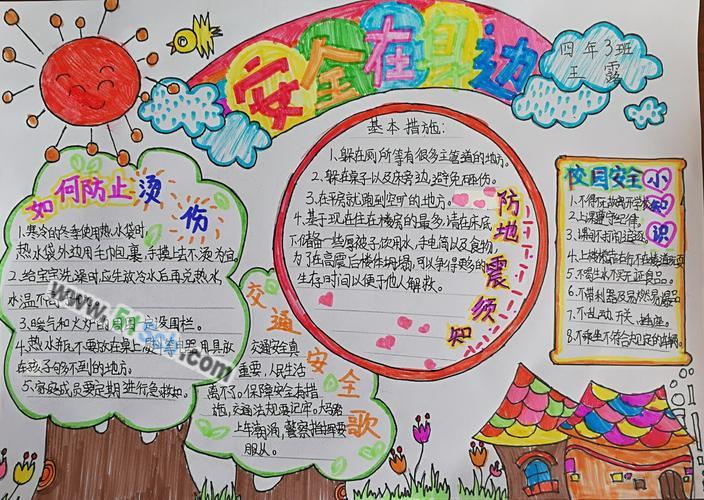 安全在身边
四年3班
王露
如何防止烫伤
1.寒冷的冬季使用热水袋时,
热水袋外边用毛巾包裹,手摸上去不烫为宜
2.给宝宝洗澡时应先放冷水后再兑热水,
水温不高
3.暖气和火炉的周围一定设围栏。
4.热水瓶不要放在桌上
在孩子够不到的地方。
5.家庭成员要定期进行急救
基本措施:
1.躲在厕所等有很多主管道的地方。
2.躲在桌子以及床旁边,避免压伤。
3.在平房就跑到空旷的地方。
4.基于现在住在楼房的最多,请在床底
下储备一些厚被子饮用水,手电筒以及食物,
为了在高震后楼体坍塌,可以争得更多的
生存时间以便于他人解救。
防地震须知
交通安全歌
交通安全真
重要,人民生活
离不了。保障安全有措
施,交通法规要记牢。大马路
上车辆满,警察指挥要
服从。
校园安全小知识
1.不得无故离开学校
2.上课遵守纪律。
3.课间不打闹追逐
4.上楼梯靠右行不在楼道
5.不喝生水不买三无食品。
6.不带利器及易燃易爆品
7.不乱动开关、插座。
8.不乘坐不符合规定的车辆。